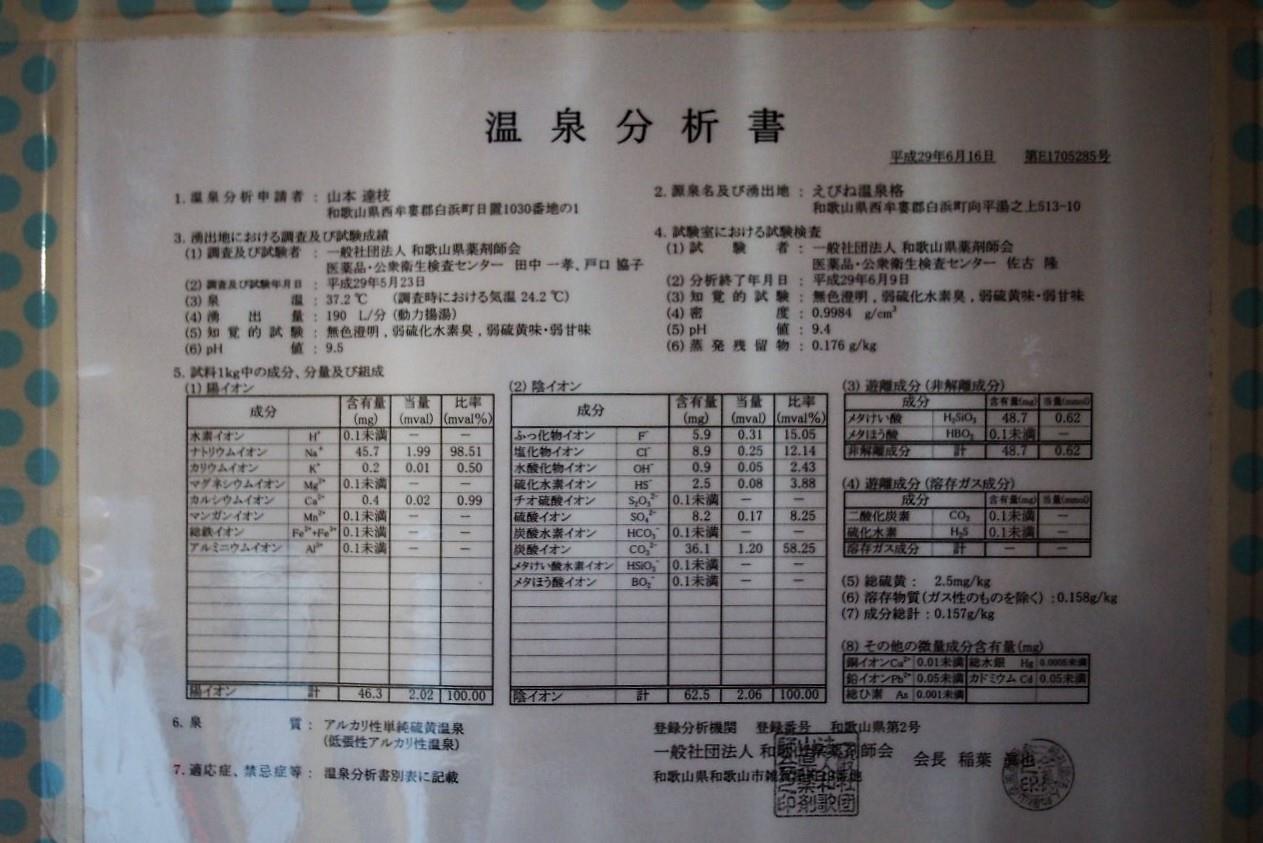 温泉分析書
平成29年6月16日 第E1705285号
1. 温泉分析申請者 : 山本 達枝
和歌山県西牟婁郡白浜町日置1030番地の1
2. 源泉名及び湧出地 : えびね温泉格
和歌山県西牟婁郡白浜町向平湯之上513-10
3. 湧出地における調査及び試験成績
(1) 調査及び試験者 : 一般社団法人 和歌山県薬剤師会
医薬品・公衆衛生検査センター 田中 一孝、戸口 協子
(2) 調査及び試験年月日 : 平成29年5月23日
(3) 泉温 : 37.2 ℃ (調査時における気温 24.2 ℃)
(4) 湧出量 : 190 L/分 (動力揚湯)
(5) 知覚的試験 : 無色澄明 , 弱硫化水素臭 , 弱硫黄味・弱甘味
(6) pH値 : 9.5
4. 試験室における試験検査
(1) 試験者 : 一般社団法人 和歌山県薬剤師会
医薬品・公衆衛生検査センター 佐古 隆
(2) 分析終了年月日 : 平成29年6月9日
(3) 知覚的試験 : 無色澄明 , 弱硫化水素臭 , 弱硫黄味・弱甘味
(4) 密度 : 0.9984 g/cm³
(5) pH値 : 9.4
(6) 蒸発残留物 : 0.176 g/kg
5. 試料1kg中の成分、分量及び組成
(1) 陽イオン
成分 含有量(mg) 当量(mval) 比率(mval%)
水素イオン H⁺ 0.1未満 — —
ナトリウムイオン Na⁺ 45.7 1.99 98.51
カリウムイオン K⁺ 0.2 0.01 0.50
マグネシウムイオン Mg²⁺ 0.1未満 — —
カルシウムイオン Ca²⁺ 0.4 0.02 0.99
マンガンイオン Mn²⁺ 0.1未満 — —
総鉄イオン Fe²⁺+Fe³⁺ 0.1未満 — —
アルミニウムイオン Al³⁺ 0.1未満 — —
陽イオン 計 46.3 2.02 100.00
(2) 陰イオン
成分 含有量(mg) 当量(mval) 比率(mval%)
ふっ化物イオン F⁻ 5.9 0.31 15.05
塩化物イオン Cl⁻ 8.9 0.25 12.14
水酸化物イオン OH⁻ 0.9 0.05 2.43
硫化水素イオン HS⁻ 2.5 0.08 3.88
チオ硫酸イオン S₂O₃²⁻ 0.1未満 — —
硫酸イオン SO₄²⁻ 8.2 0.17 8.25
炭酸水素イオン HCO₃⁻ 0.1未満 — —
炭酸イオン CO₃²⁻ 36.1 1.20 58.25
メタけい酸水素イオン HSiO₃⁻ 0.1未満 — —
メタほう酸イオン BO₂⁻ 0.1未満 — —
陰イオン 計 62.5 2.06 100.00
(3) 遊離成分 (非解離成分)
成分 含有量(mg) 当量(mmol)
メタけい酸 H₂SiO₃ 48.7 0.62
メタほう酸 HBO₂ 0.1未満 —
非解離成分 計 48.7 0.62
(4) 遊離成分 (溶存ガス成分)
成分 含有量(mg) 当量(mmol)
二酸化炭素 CO₂ 0.1未満 —
硫化水素 H₂S 0.1未満 —
溶存ガス成分 計 — —
(5) 総硫黄 : 2.5mg/kg
(6) 溶存物質 (ガス性のものを除く) : 0.158g/kg
(7) 成分総計 : 0.157g/kg
(8) その他の微量成分含有量(mg)
銅イオンCu²⁺ 0.01未満 総水銀 Hg 0.0005未満
鉛イオンPb²⁺ 0.05未満 カドミウム Cd 0.05未満
総ひ素 As 0.001未満
6. 泉質 : アルカリ性単純硫黄温泉
(低張性アルカリ性温泉)
7. 適応症、禁忌症等 : 温泉分析書別表に記載
登録分析機関 登録番号 和歌山県第2号
一般社団法人 和歌山県薬剤師会 会長 稲葉 眞也
和歌山県和歌山市